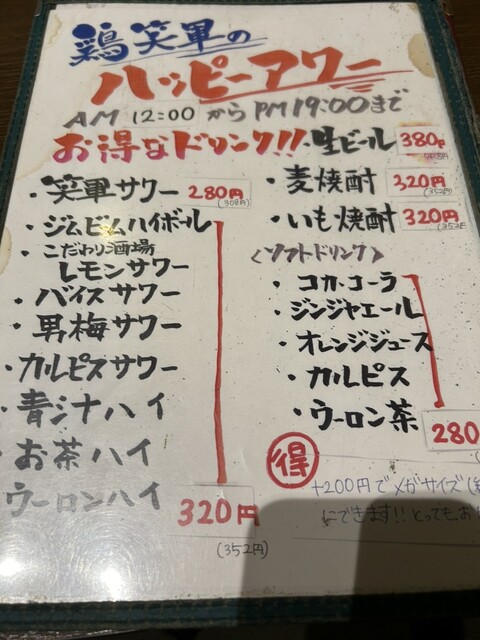 鶏笑軍の
ハッピーアワー
AM 12:00 から PM 19:00まで
お得なドリンク!!
・生ビール 380円
・笑軍サワー 280円
(308円)
・ジムビムハイボール
・こだわり酒場
レモンサワー
・バイスサワー
・男梅サワー
・カルピスサワー
・青汁ハイ
・お茶ハイ
ウーロンハイ
320円
(352円)
・麦焼酎 320円
(352円)
・いも焼酎 320円
(352円
〈ソフトドリンク〉
・コカ・コーラ
・ジンジャエール
・オレンジジュース
・カルピス
・ウーロン茶
280
得
+200円でメガサイズ
にできます!! とっても